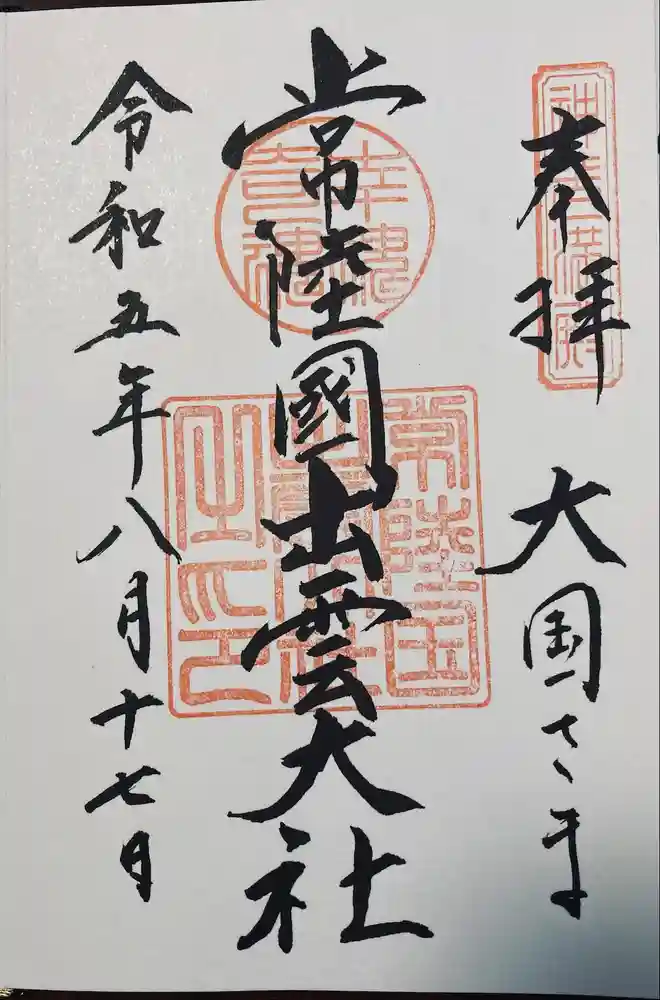 奉拝
大国さま
常陸國出雲大社
令和五年八月十七日
常陸国